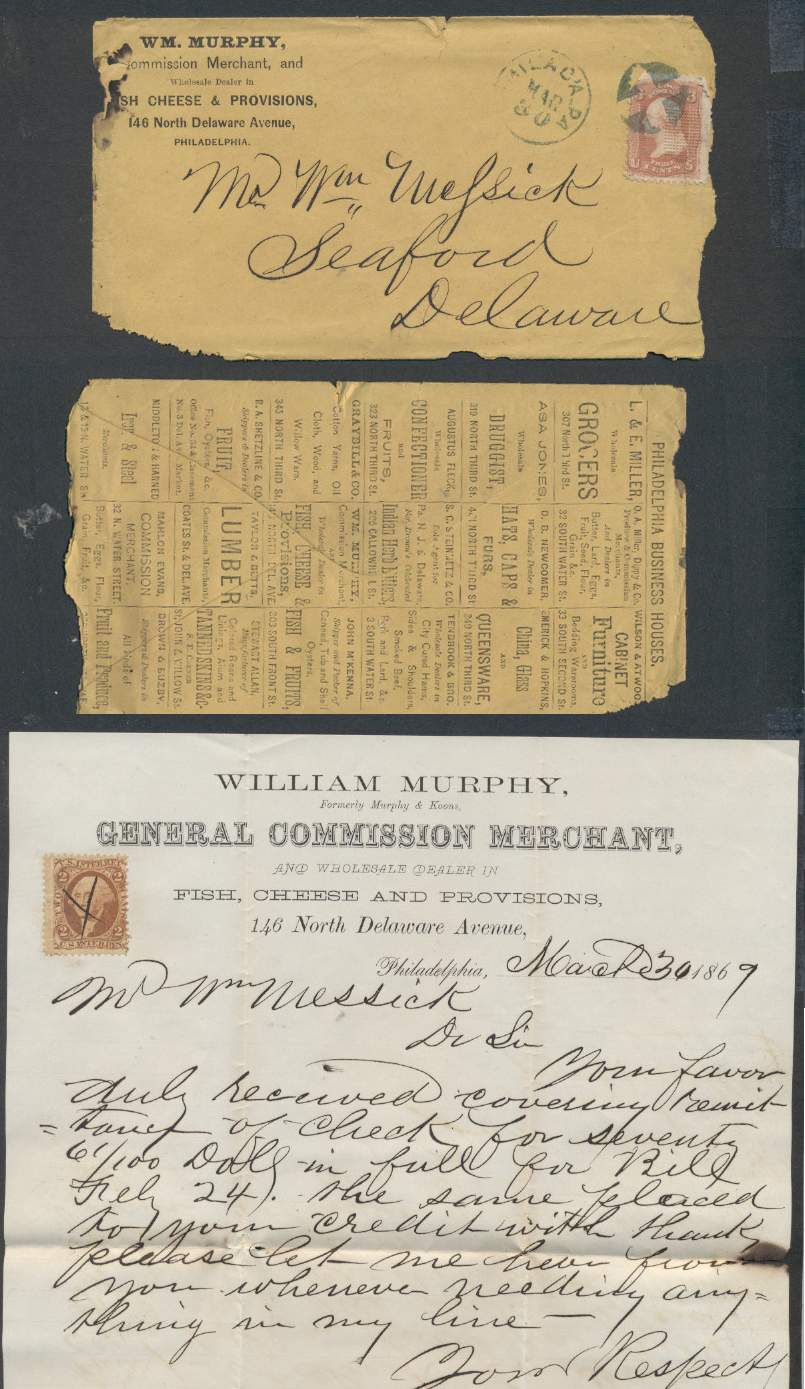 WM. MURPHY,
Commission Merchant, and
Wholesale Dealer in
SH CHEESE & PROVISIONS,
146 North Delaware Avenue,
PHILADELPHIA.
PHILADA. PA
MAR
30
3 U.S. POSTAGE 3
U THREE CENTS S
Mr. Wm Messick
Seaford
Delaware
PHILADELPHIA BUSINESS HOUSES.
L. & E. MILLER,
Wholesale
GROCERS
307 North Third St.
ASA JONES,
Wholesale
DRUGGIST,
319 NORTH THIRD St.
AUGUSTUS FLECK,
Wholesale
CONFECTIONER
and
FRUITS,
323 NORTH THIRD St.
GRAYBILL & CO.
Cotton Yarns, Oil
Cloth, Wood, and
Willow Ware.
345 NORTH THIRD St.
R. A. SHETZLINE & CO.
Shippers & Dealers in
FRUIT,
Fish, Oysters, &c.
No. 3 Dell. Av. Market.
MIDDLETON & HARNED
Iron & Steel
N. WATER St.
O. A. Miller, Dippy & Co.
Produce & Commission
Merchants,
And Dealers in
Butter, Lard, Eggs,
Fruit, Seed, Flour,
Grain &c.
32 SOUTH WATER St.
D. R. NEWCOMER,
Wholesale Dealer in
HATS, CAPS &
FURS,
NORTH THIRD St.
S. C. STEINMETZ & CO.
Sole Agent for
Pa. N. J. & Delaware,
Indian Herb Bitters,
205 CALLOWHILL St.
WM. MURPHY,
Commission Merchant,
AND
Wholesale Dealer in
FISH, CHEESE &
Provisions,
NORTH DEL. AVE.
TAYLOR & BETTS,
LUMBER
Commission Merchants,
COATES St. & DEL. AVE.
MAHLON EVANS,
COMMISSION
MERCHANT,
32 N. WATER STREET.
Butter, Eggs, Flour,
Grain, Fruit, &c.
WILSON & ATWOOD
CABINET
Furniture
AND
Bedding Warerooms,
33 SOUTH SECOND St.
EMERICK & HOPKINS,
China, Glass
AND
QUEENSWARE,
349 NORTH THIRD St.
TENBROOK & BRO.
Wholesale Dealers in
City Cured Hams,
Sides & Shoulders,
Smoked Beef,
Pork and Lard, &c.
3 SOUTH WATER St.
JOHN M'KENNA,
Shipper and Dealer of
Canned, Tub and Shell
Oysters,
FISH & FRUITS,
303 SOUTH FRONT St.
STEWART ALLAN,
Manufacturer of
Colored Roans and
Linings, Alum and
TANNED SKINS &C.
St. JOHN & WILLOW St.
BROWN & BUZBY,
Shippers & Dealers in
All kinds of
Fruit and Produce,
WILLIAM MURPHY,
Formerly Murphy & Koons,
GENERAL COMMISSION MERCHANT,
AND WHOLESALE DEALER IN
FISH, CHEESE AND PROVISIONS,
146 North Delaware Avenue,
U.S. INTER. REV.
2 2
2 2
U.S. INTER. REV.
Philadelphia, March 30 1869
Mr Wm Messick
Dr Sir
Your favor
duly received covering remit
=tance of check for seventy
61/100 Dolls in full for Bill
Feby 24). the same placed
to your credit with thanks
please let me hear from
you whenever needing any=
thing in my line —
Yours Respectf